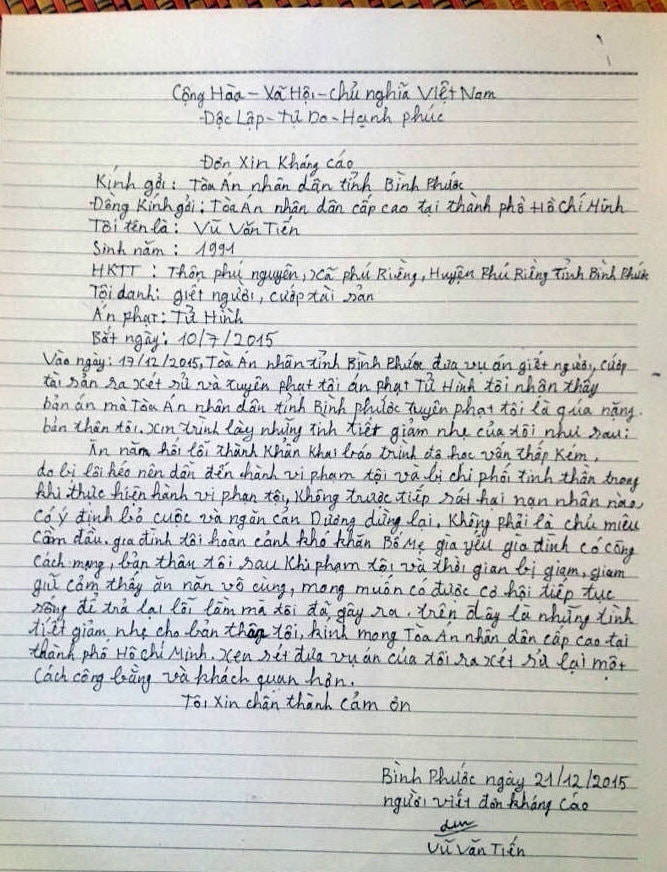 Cộng Hòa - Xã Hội - Chủ nghĩa Việt Nam
Độc Lập - Tự Do - Hạnh phúc
Đơn Xin Kháng cáo
Kính gởi : Tòa Án nhân dân tỉnh Bình Phước
Đồng Kính gởi : Tòa Án nhân dân cấp cao tại thành phố Hồ Chí Minh
Tôi tên là : Vũ Văn Tiến
Sinh năm : 1991
HKTT : Thôn phú nguyên, xã phú Riềng, Huyện Phú Riềng tỉnh Bình Phước
Tội danh: giết người, cướp tài sản
Án phạt : Tử Hình
Bắt ngày : 10/7/2015
Vào ngày : 17/12/2015, Tòa Án nhân tỉnh Bình Phước đưa vụ án giết người, cướp
tài sản ra xét sử và tuyên phạt tôi án phạt Tử Hình tôi nhận thấy
bản án mà Tòa Án nhân dân tỉnh Bình phước tuyên phạt tôi là qúa nặng.
bản thân tôi. xin trình lày những tình tiết giảm nhẹ của tôi như sau:
Ăn năn hối lỗi thành Khẩn Khai báo trình độ học vấn thấp Kém.
do bị lôi kéo nên dẫn đến hành vi phạm tội và bị chi phối tinh thần trong
khi thực hiện hành vi phạn tội, Không trước tiếp sát hại nạn nhân nào,
Có ý định bỏ cuộc và ngăn cản Dương dừng lại. Không phải là chủ miêu
cầm đầu. gia đình tôi hoàn cảnh khó khăn Bố Mẹ gìa yếu gia đình có công
Cách mạng, bản thân tôi sau Khi phạm tội và thời gian bị giam, giam
giữ cảm thấy ăn năn vô cùng, mong muốn có được cơ hội tiếp tục
sống để trả lại lỗi lầm mà tôi đã gây ra. trên đây là những tình
tiết giảm nhẹ cho bản thân tôi, kính mong Tòa Án nhân dân cấp cao tại
thành phố Hồ Chí Minh. xen sét đưa vụ án của tôi ra xét sử lại một
Cách công bằng và khách quan hơn.
Tôi Xin chân thành cảm ơn
Bình Phước ngày 21/12/2015
người viết đơn kháng cáo
Vũ Văn Tiến